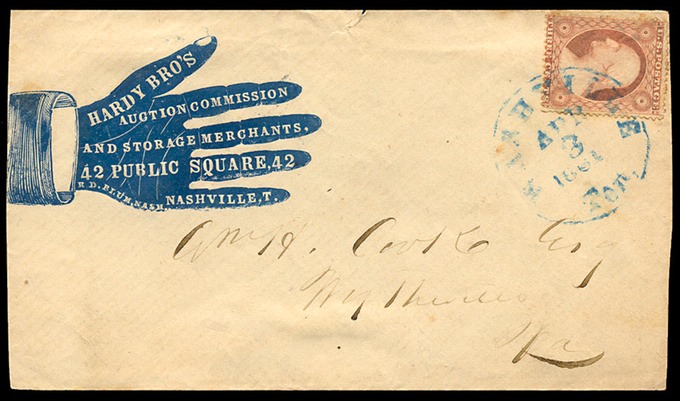 HARDY BRO'S
AUCTION COMMISSION
AND STORAGE MERCHANTS,
42 PUBLIC SQUARE, 42
NASHVILLE, T.
R. D. BLUM, NASH.
U.S. POSTAGE
THREE CENTS
NASHVILLE
APR
3
1861
Ten.
Wm H. Cook Esq
Wytheville
Va